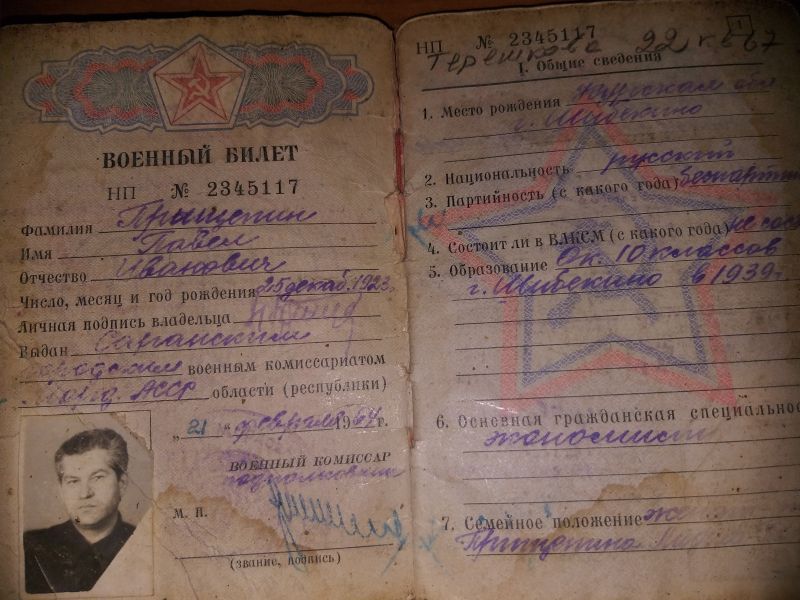 ВОЕННЫЙ БИЛЕТ
НП № 2345117
Фамилия Прищепин
Имя Павел
Отчество Иванович
Число, месяц и год рождения 25 декаб. 1923.
Личная подпись владельца
Выдан Саранским
городским военным комиссариатом
Морд. АССР области (республики)
„21 " февраля 1964 г.
ВОЕННЫЙ КОМИССАР
подполковник
М. П.
(звание, подпись)
1
НП № 2345117
Терешкова 22 кв 67
I. Общие сведения
1. Место рождения Курская обл
г. Шибекино
2. Национальность русский
3. Партийность (с какого года) беспартийн
4. Состоит ли в ВЛКСМ (с какого года) не сост
5. Образование Ок. 10 классов
г. Шибекино в 1939г.
6. Основная гражданская специальнос
экономист
7. Семейное положение
Прищепина